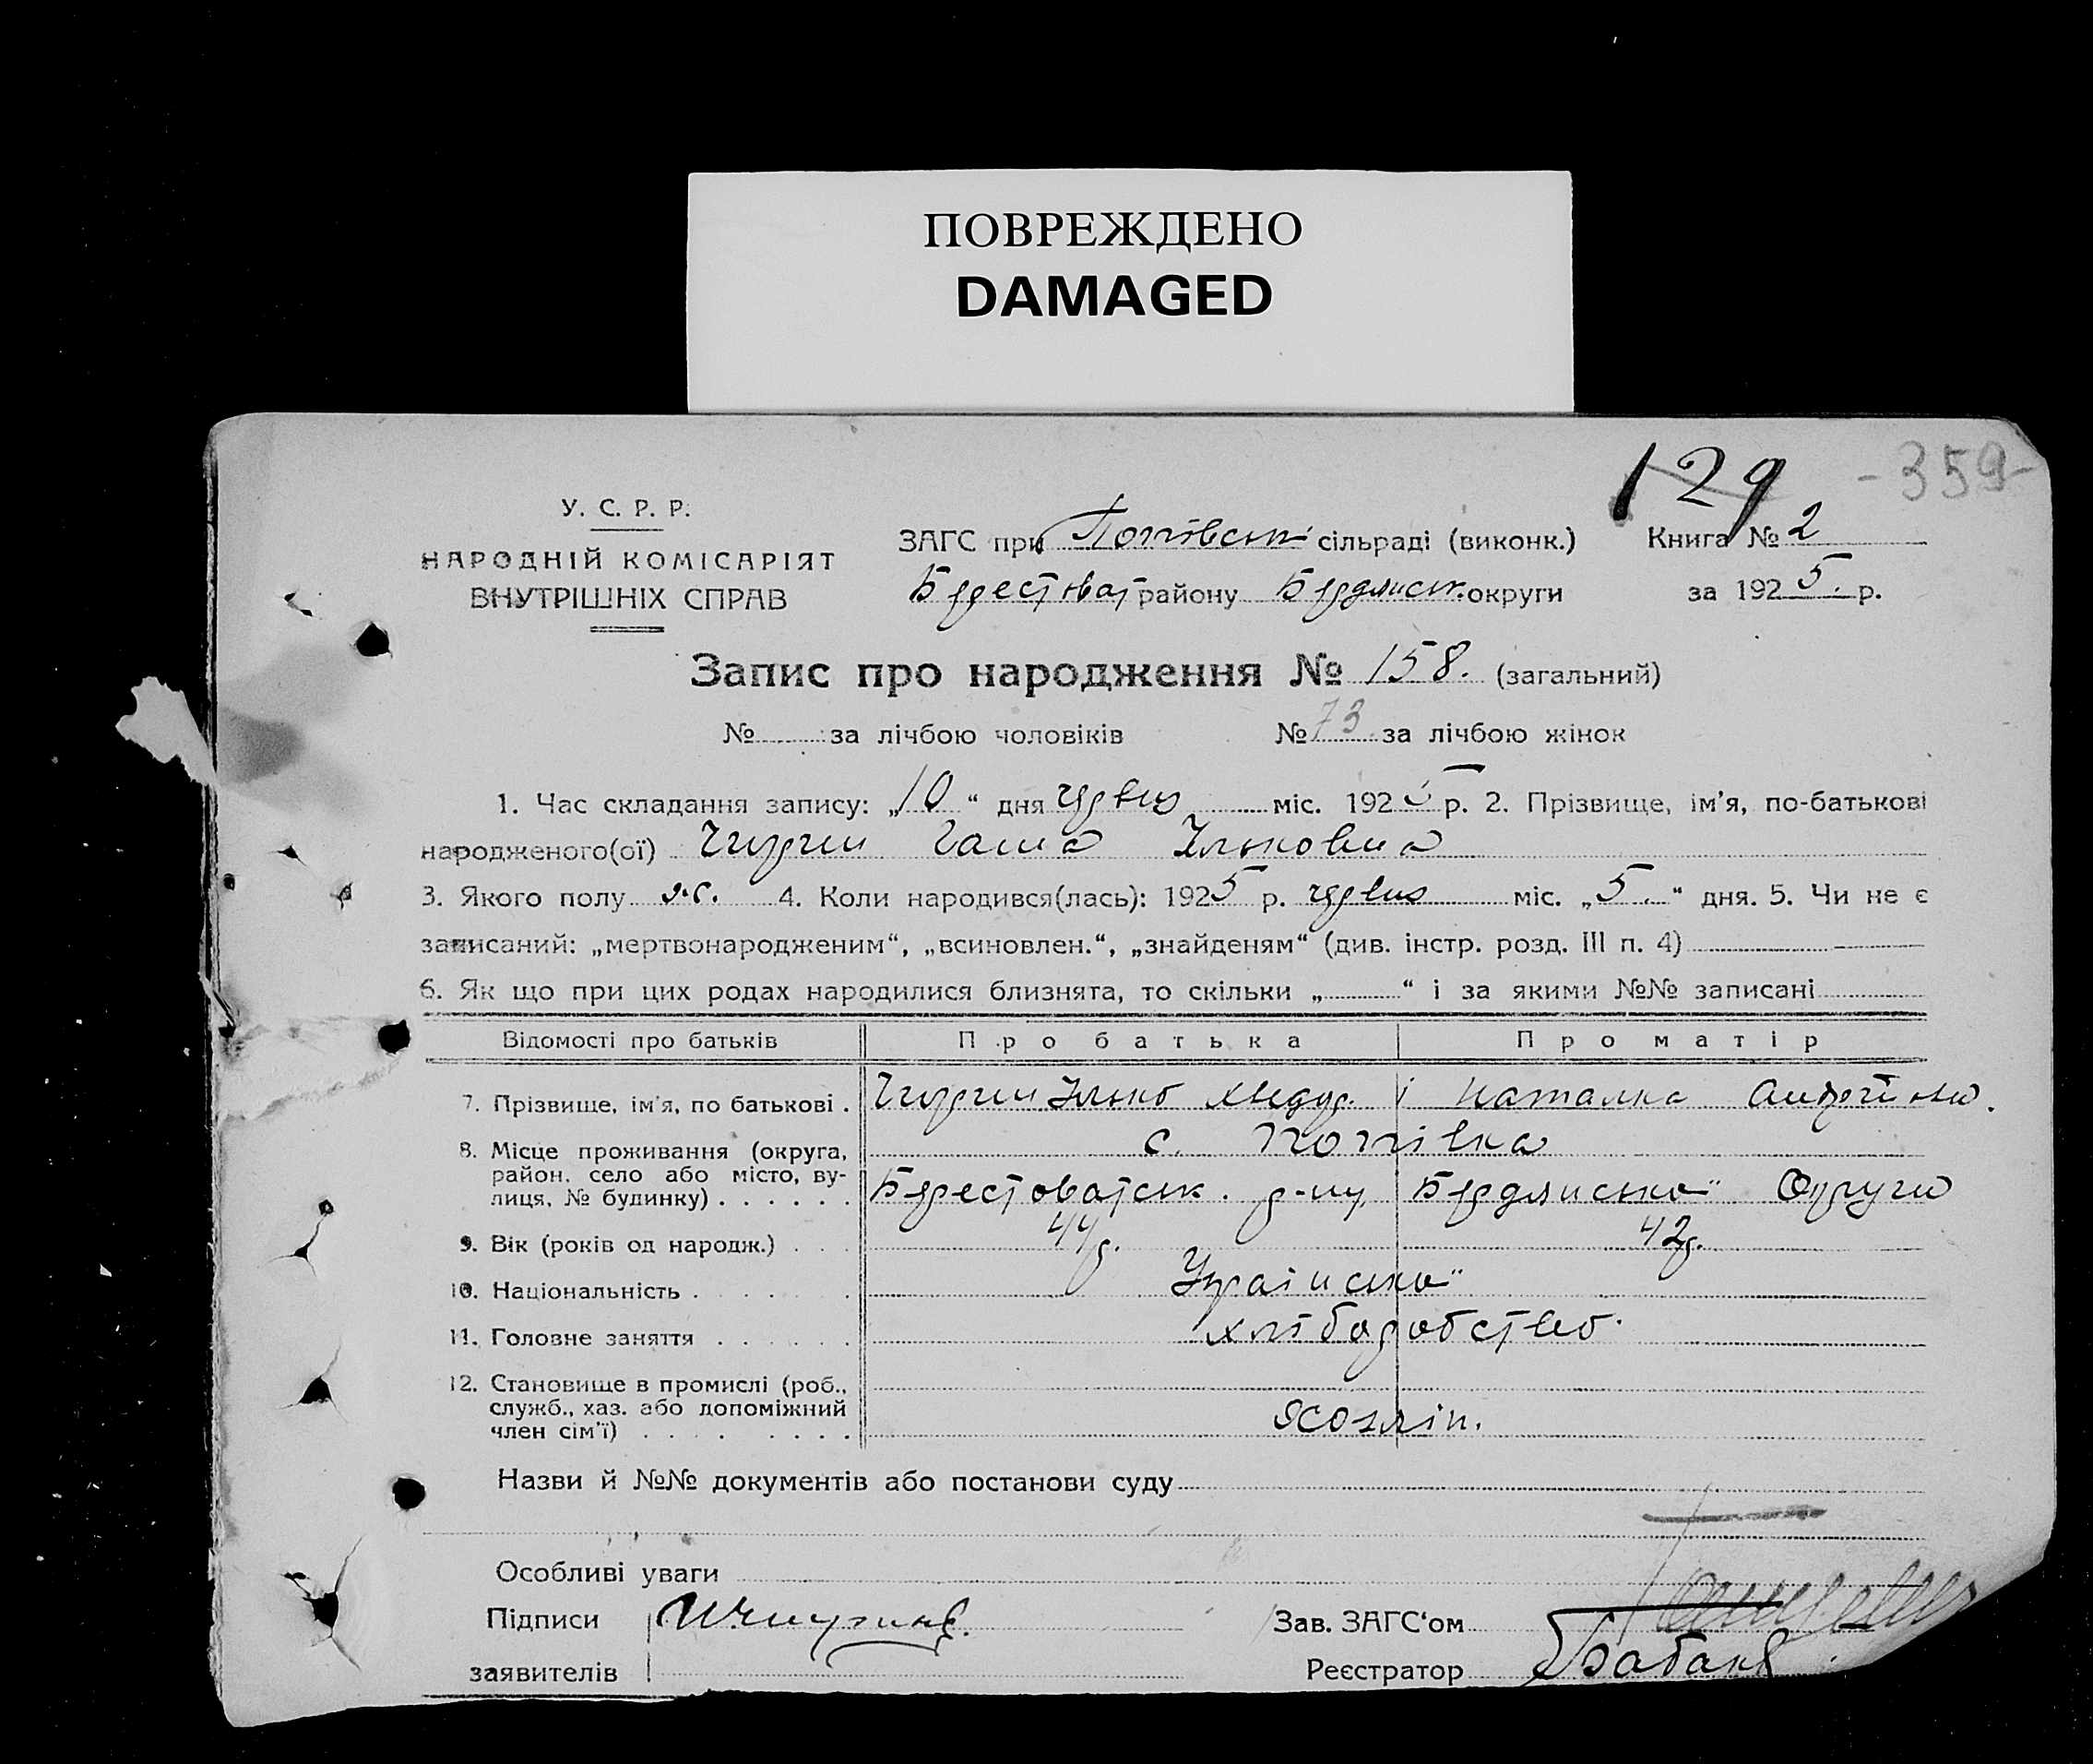 ПОВРЕЖДЕНО
DAMAGED
129 -359-
У. С. Р. Р.
НАРОДНІЙ КОМІСАРІЯТ
ВНУТРІШНІХ СПРАВ
ЗАГС при Попівськ сільраді (виконк.) Книга № 2
Берестоват району Бердянськ. округи за 1925. р.
Запис про народження № 158. (загальний)
№ за лічбою чоловіків № 73 за лічбою жінок
1. Час складання запису: „10“ дня червня міс. 1925 р. 2. Прізвище, ім'я, по-батькові
народженого(ої) Ганна Ільковна
3. Якого полу ж. 4. Коли народився(лась): 1925 р. червня міс. „5.“ дня. 5. Чи не є
записаний: „мертвонародженим“, „всиновлен.“, „знайденям“ (див. інстр. розд. III п. 4)
6. Як що при цих родах народилися близнята, то скільки „ “ і за якими №№ записані
Відомості про батьків Про батька Про матір
7. Прізвище, ім'я, по батькові . Ілько Хведор. і Наталка
с. Попівка
8. Місце проживання (округа,
район, село або місто, ву-
лиця, № будинку) . . . . . . Берестоватськ. р-ну, Бердянсько" Округи
9. Вік (років од народж.) . . . 44р. 42р.
10. Національність . . . . . Українсько"
11. Головне заняття . . . . . . хліборобство.
12. Становище в промислі (роб.,
служб., хаз. або допоміжний
член сім'ї) . . . . . . . . .
Назви й №№ документів або постанови суду
Особливі уваги
Підписи
заявителів
Зав. ЗАГС'ом
Реєстратор